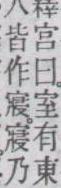 釋宮曰。室有東
皆作寢。寢乃